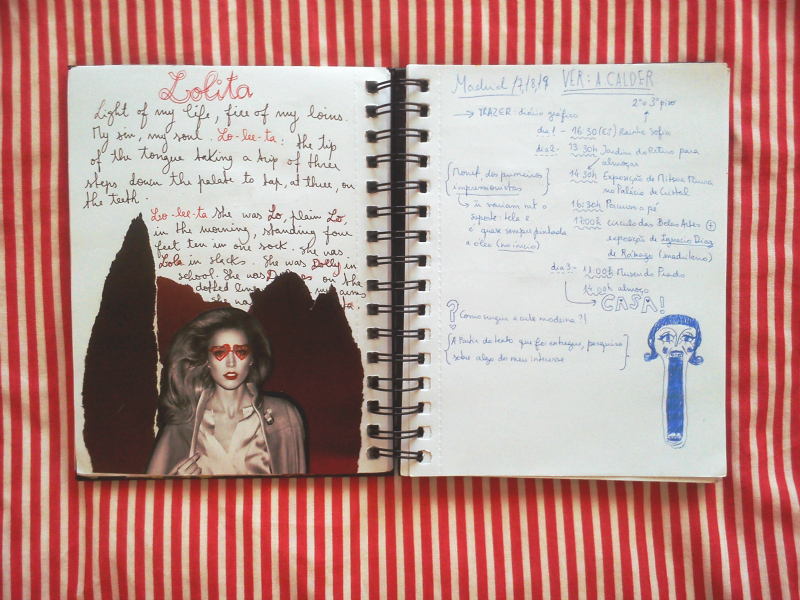 Lolita
Light of my life, fire of my loins.
My sin, my soul. Lo-lee-ta: the tip
of the tongue taking a trip of three
steps down the palate to tap, at three, on
the teeth.
Lo-lee-ta She was Lo, plain Lo,
in the morning, standing four
feet ten in one sock. She was
Lola in slacks. She was Dolly in
school. She was on the
dotted my arms
she wa ta.
Madrid 17/8/9 VER: A CALDER
2º e 3º piso
→ TRAZER: diário gráfico
dia 1 - 16:30 (ES) Rainha Sofia
dia 2 - 13:30h Jardim do Retiro para
almoçar
14:30h Exposição de Mitsuo Miura
no Palácio de Cristal
Monet, dos primeiros
impressionistas
16:30h Percurso a pé
17:00h círculo das Belas Artes +
exposição de Ignacio Diaz
de Rábago (madrileno)
→ suporte: tela e
é quase sempre pintada
a óleo (no início)
dia 3 - 11:00h Museu do Prado
14:00h almoço
→ CASA!
? Como surgiu a arte moderna?!
A Partir do texto que foi entregue, pesquisa
sobre algo do meu interesse